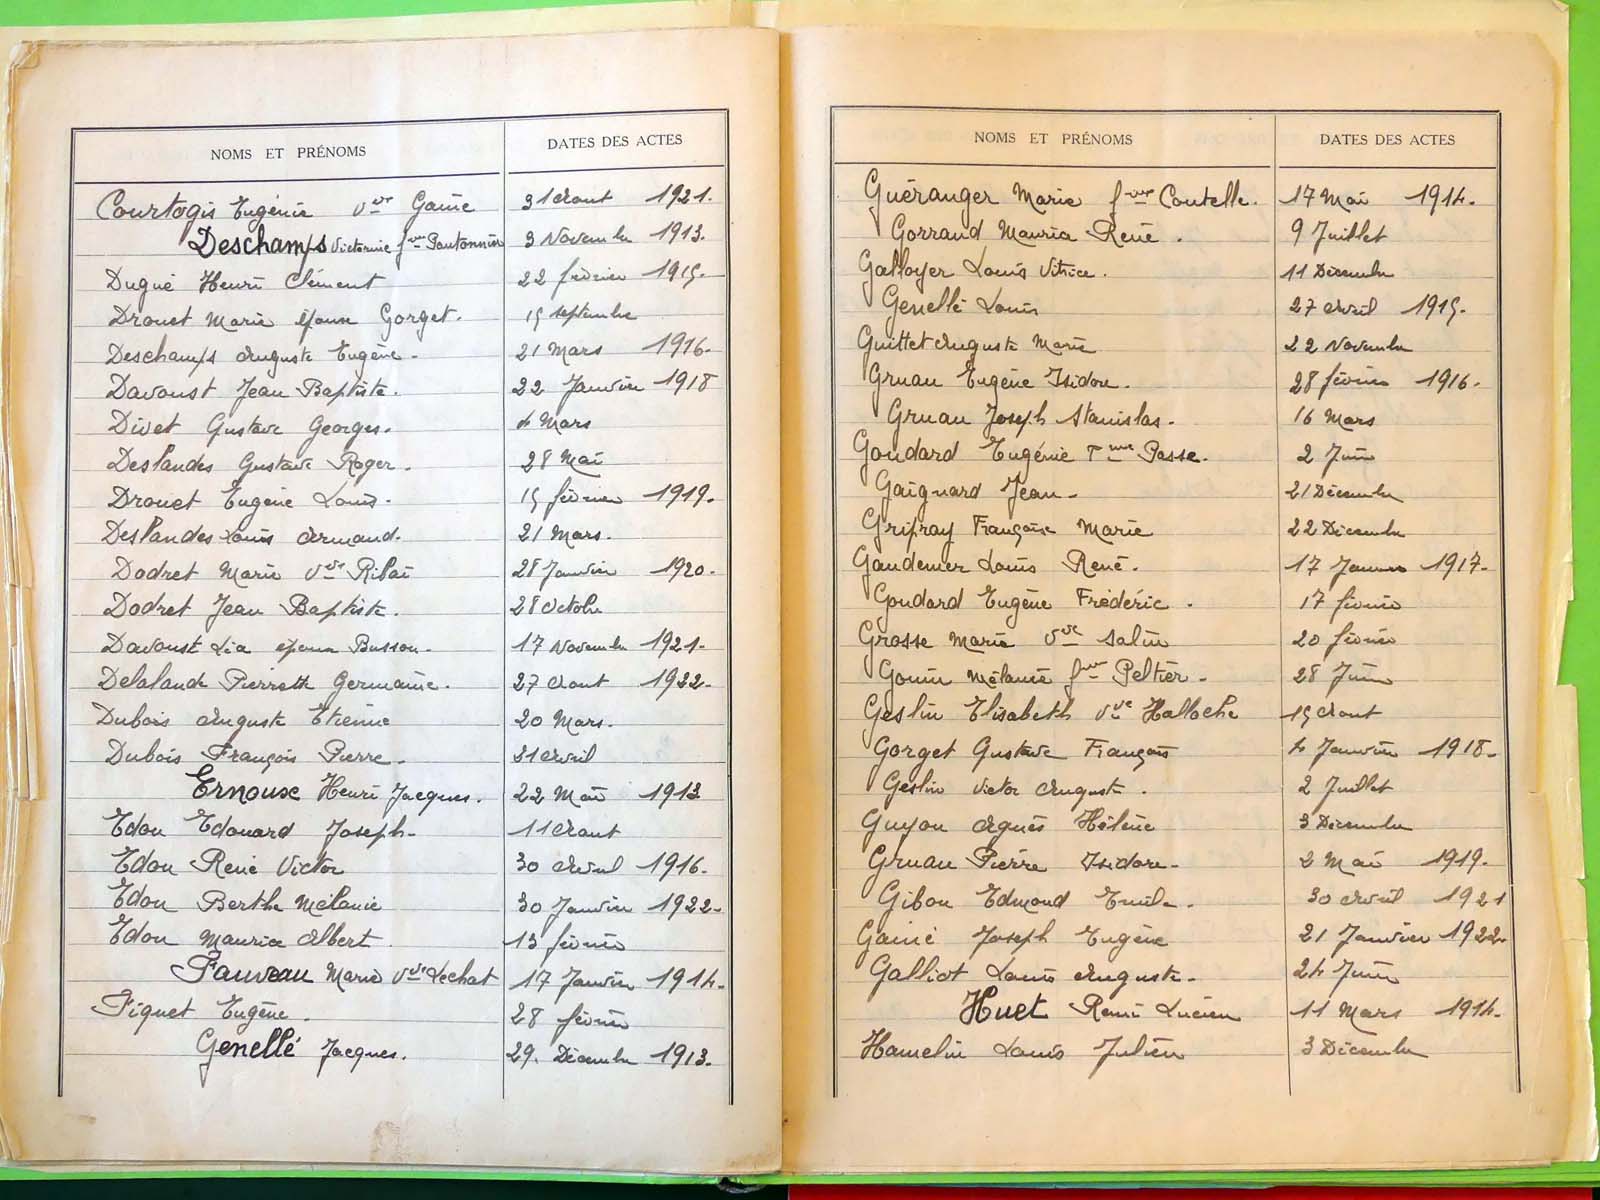 NOMS ET PRÉNOMS DATES DES ACTES
Courtogis Eugénie vve Gaine 31 Aout 1921.
Deschamps Victorine fme Pautonnier 3 Novembre 1913.
Dugué Henri Clément 22 février 1915.
Drouet Marie épouse Gorget. 15 septembre
Deschamps Auguste Eugène. 21 Mars 1916.
Davoust Jean Baptiste. 22 Janvier 1918
Divet Gustave Georges. 4 Mars
Deslandes Gustave Roger. 28 Mai
Drouet Eugène Louis. 15 février 1919.
Deslandes Louis Armand. 21 Mars.
Dodret Marie vve Ribai 28 Janvier 1920.
Dodret Jean Baptiste. 28 Octobre
Davoust Lia épouse Busson. 17 Novembre 1921.
Delalande Pierrette Germaine. 27 Aout 1922.
Dubois Auguste Etienne 20 Mars.
Dubois François Pierre. 31 Avril
Ernoux Henri Jacques. 22 Mai 1913
Edou Edouard Joseph. 11 Aout
Edou René Victor 30 Avril 1916.
Edou Berthe Mélanie 30 Janvier 1922.
Edou Maurice Albert. 13 février
Fauveau Marie vve Lechat 17 Janvier 1914.
Fiquet Eugène. 28 février
Genellé Jacques. 29. Décembre 1913.
NOMS ET PRÉNOMS DATES DES ACTES
Guéranger Marie fme Coutelle. 17 Mai 1914.
Gorrand Maurice René. 9 Juillet
Galloyer Louis Vitrice. 11 Décembre
Genellé Louis 27 Avril 1915.
Guittet Auguste Marie 22 Novembre
Gruau Eugène Isidore. 28 février 1916.
Gruau Joseph Stanislas. 16 Mars
Goudard Eugénie fme Passe. 2 Juin
Gaignard Jean. 21 Décembre
Grifray Françoise Marie 22 Décembre
Gaudemer Louis René. 17 Janvier 1917.
Goudard Eugène Frédéric. 17 février
Grosse Marie vve Salin 20 février
Gouin Mélanie fme Peltier. 28 Juin
Geslin Elisabeth vve Halloche 15 Aout
Gorget Gustave François 4 Janvier 1918.
Geslin Victor Auguste. 2 Juillet
Guyon Agnès Hélène 3 Décembre
Gruau Pierre Isidore. 2 Mai 1919.
Gibon Edmond Emile. 30 Avril 1921
Gainé Joseph Eugène 21 Janvier 1922.
Galliot Louis Auguste. 24 Juin
Huet Remi Lucien 11 Mars 1914.
Hamelin Louis Julien 3 Décembre